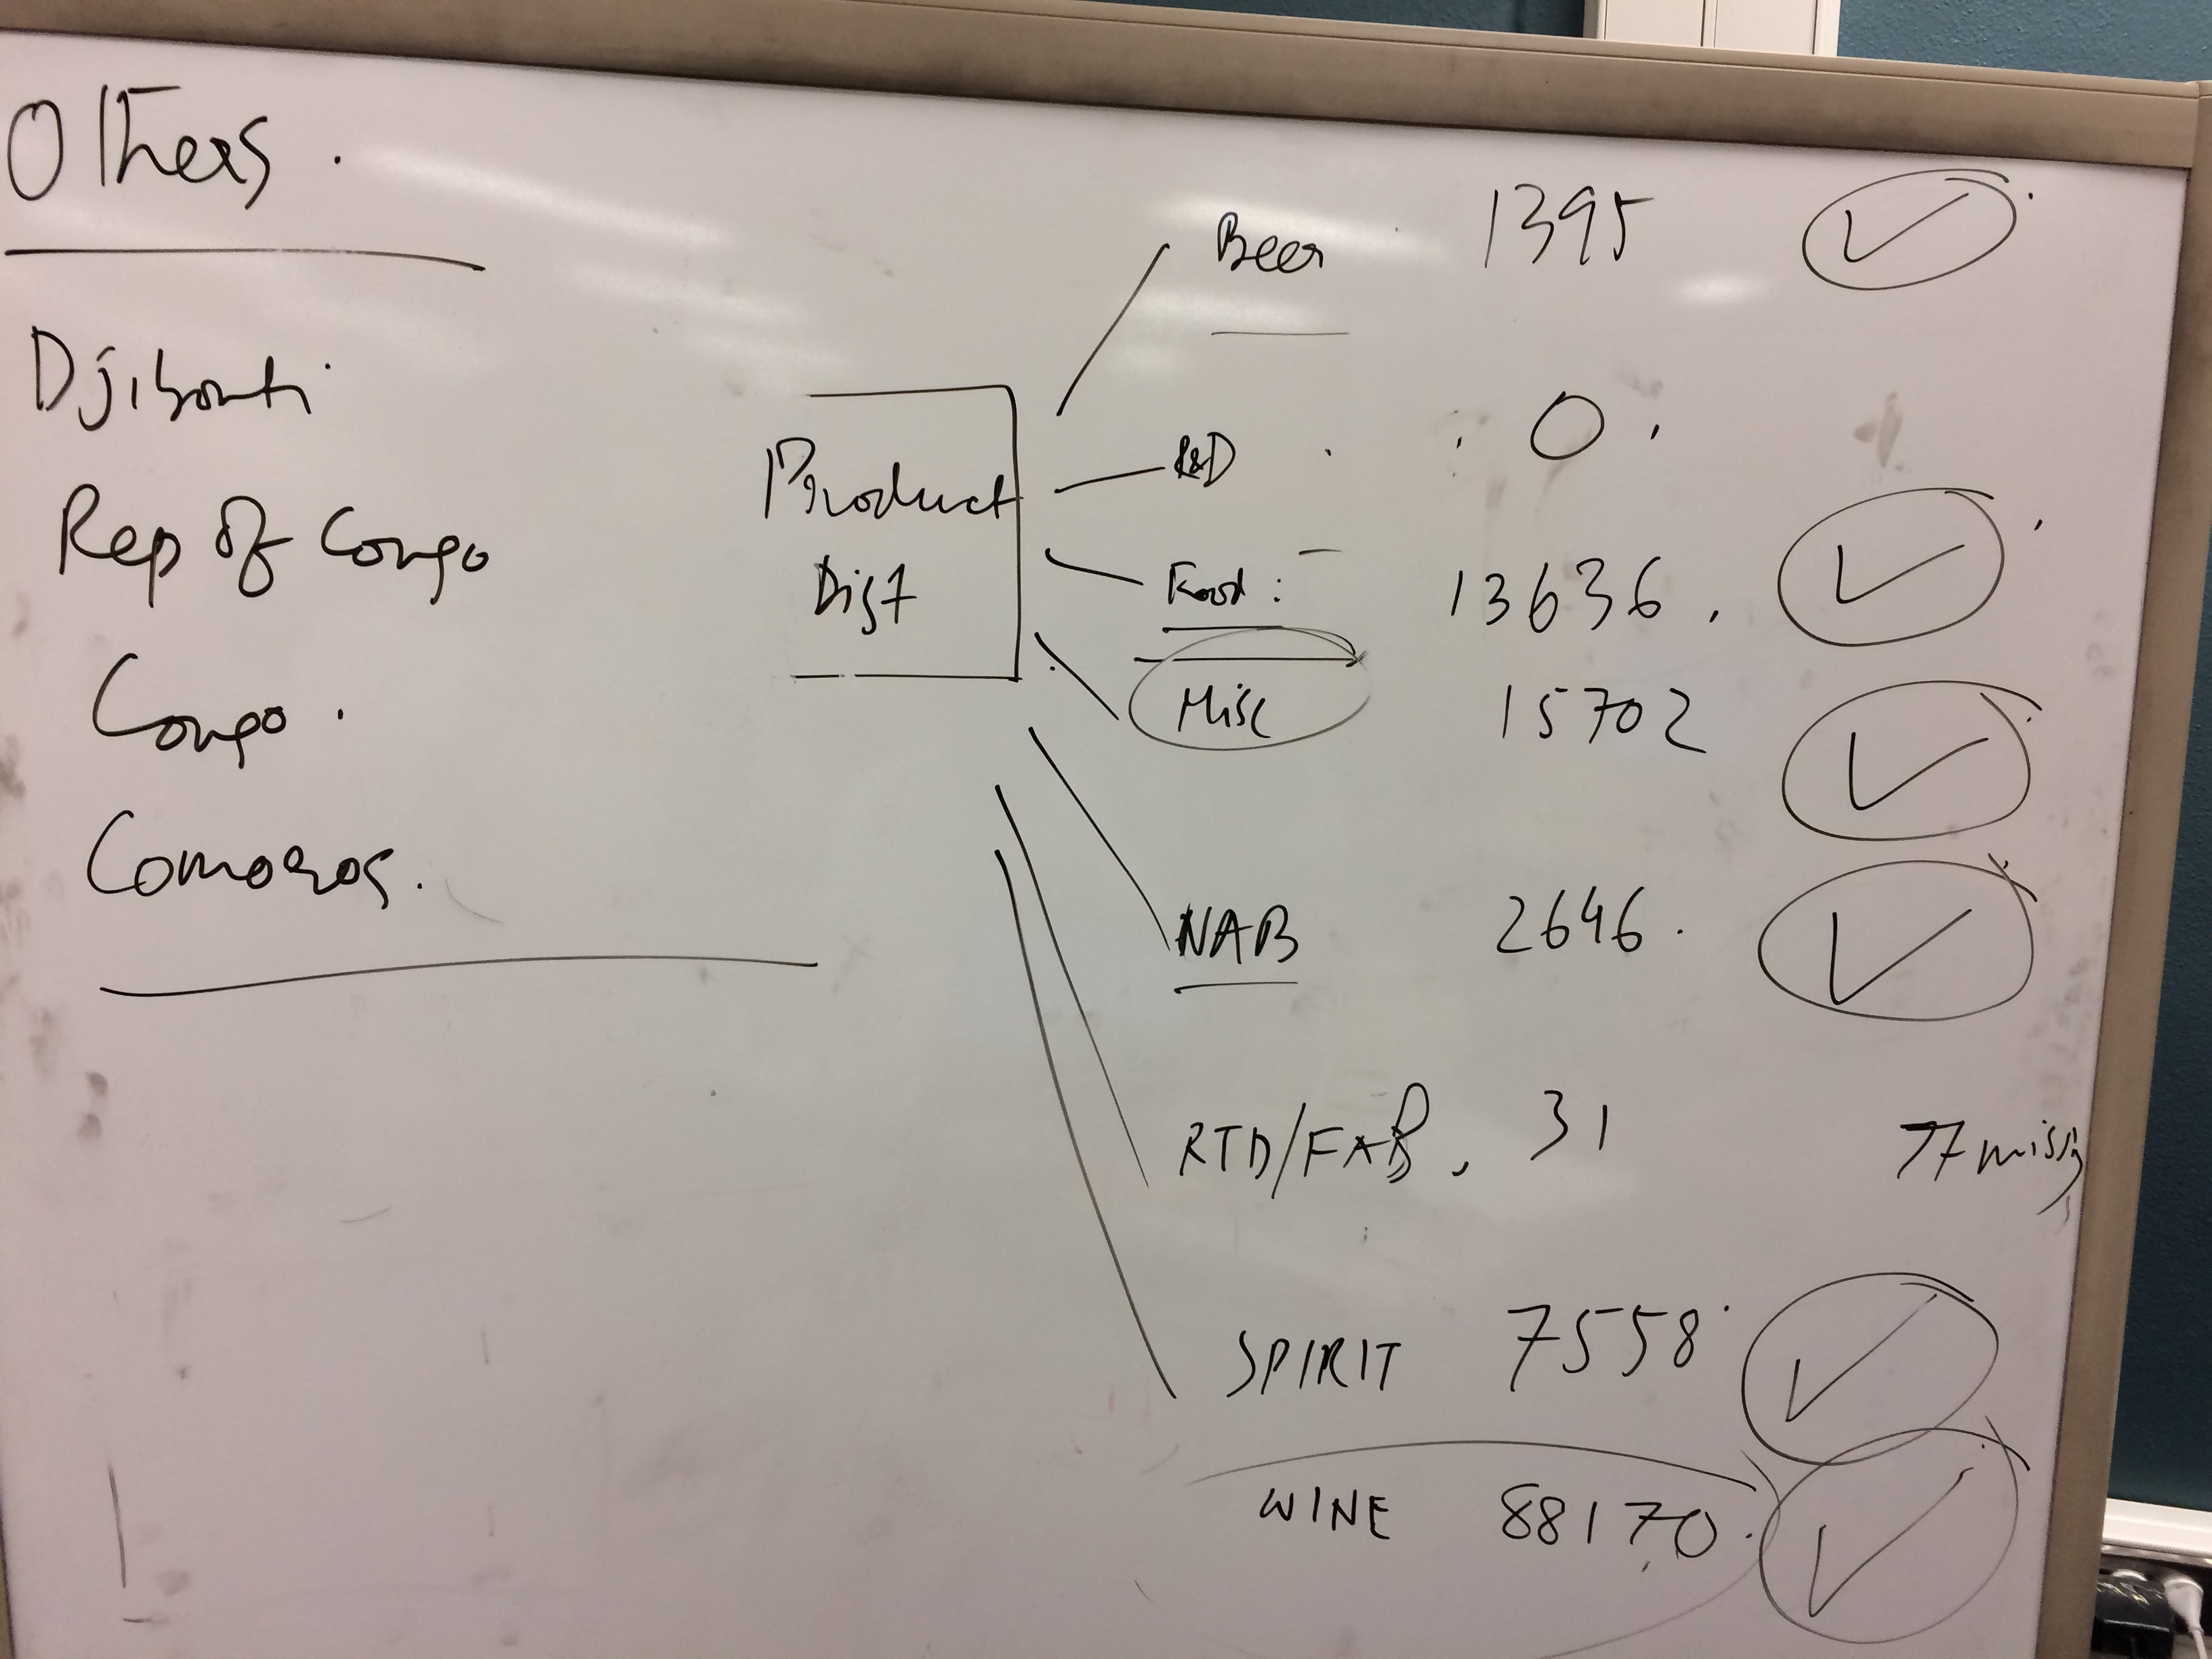 Others.
Djibouti
Rep Of Congo
Congo.
Comoros.
Product
Dist
Beer 1395
R&D 0
Food: 13636
Misc 15702
NAB 2646
RTD/FAB 31 77 missg
SPIRIT 7558
WINE 88170